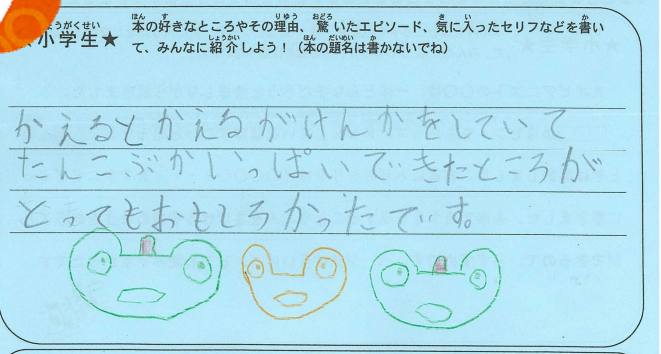 ★小学生★
本の好きなところやその理由、驚いたエピソード、気に入ったセリフなどを書い
て、みんなに紹介しよう！（本の題名は書かないでね）
かえるとかえるがけんかをしていて
たんこぶがいっぱいできたところが
とってもおもしろかったです。